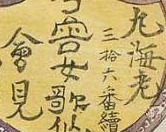 九海老
三拾六番續
女歌仙
會見